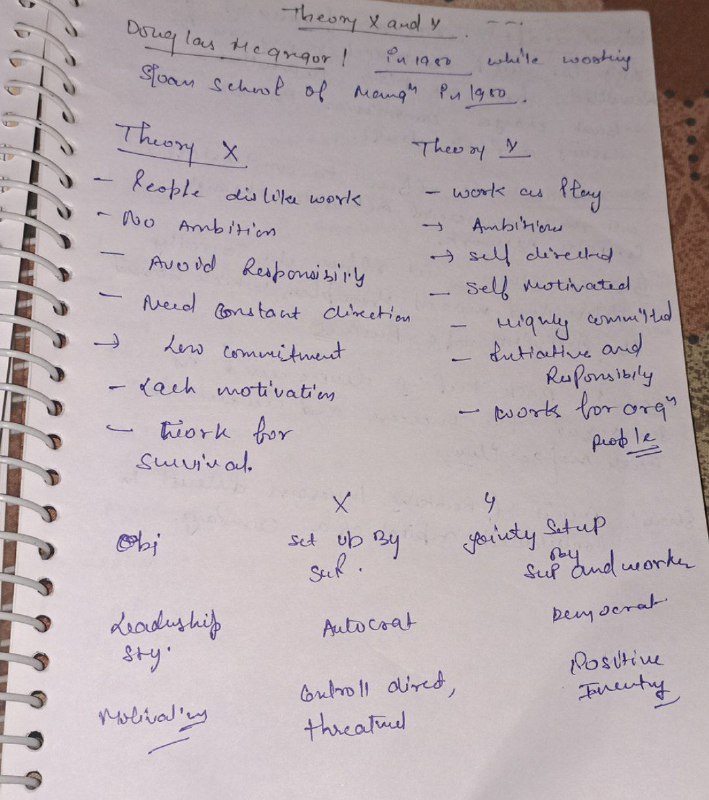 Theory X and Y.
Douglas McGregor! in 1950 while working
Sloan School of Mangn in 1950.
Theory X
- People dislike work
- No Ambition
- Avoid Responsibility
- Need Constant direction
→ Low commitment
- Lack motivation
- Work for
survival.
Theory Y
- work as Play
→ Ambitious
→ self directed
- self motivated
- Highly committed
- Initiative and
Responsibily
- work for orgn
people
X Y
Obj set up By jointy Setup
sup. by
sup and worker
Leadership Autocrat Democrat
sty.
Motivation Controll direct, Positive